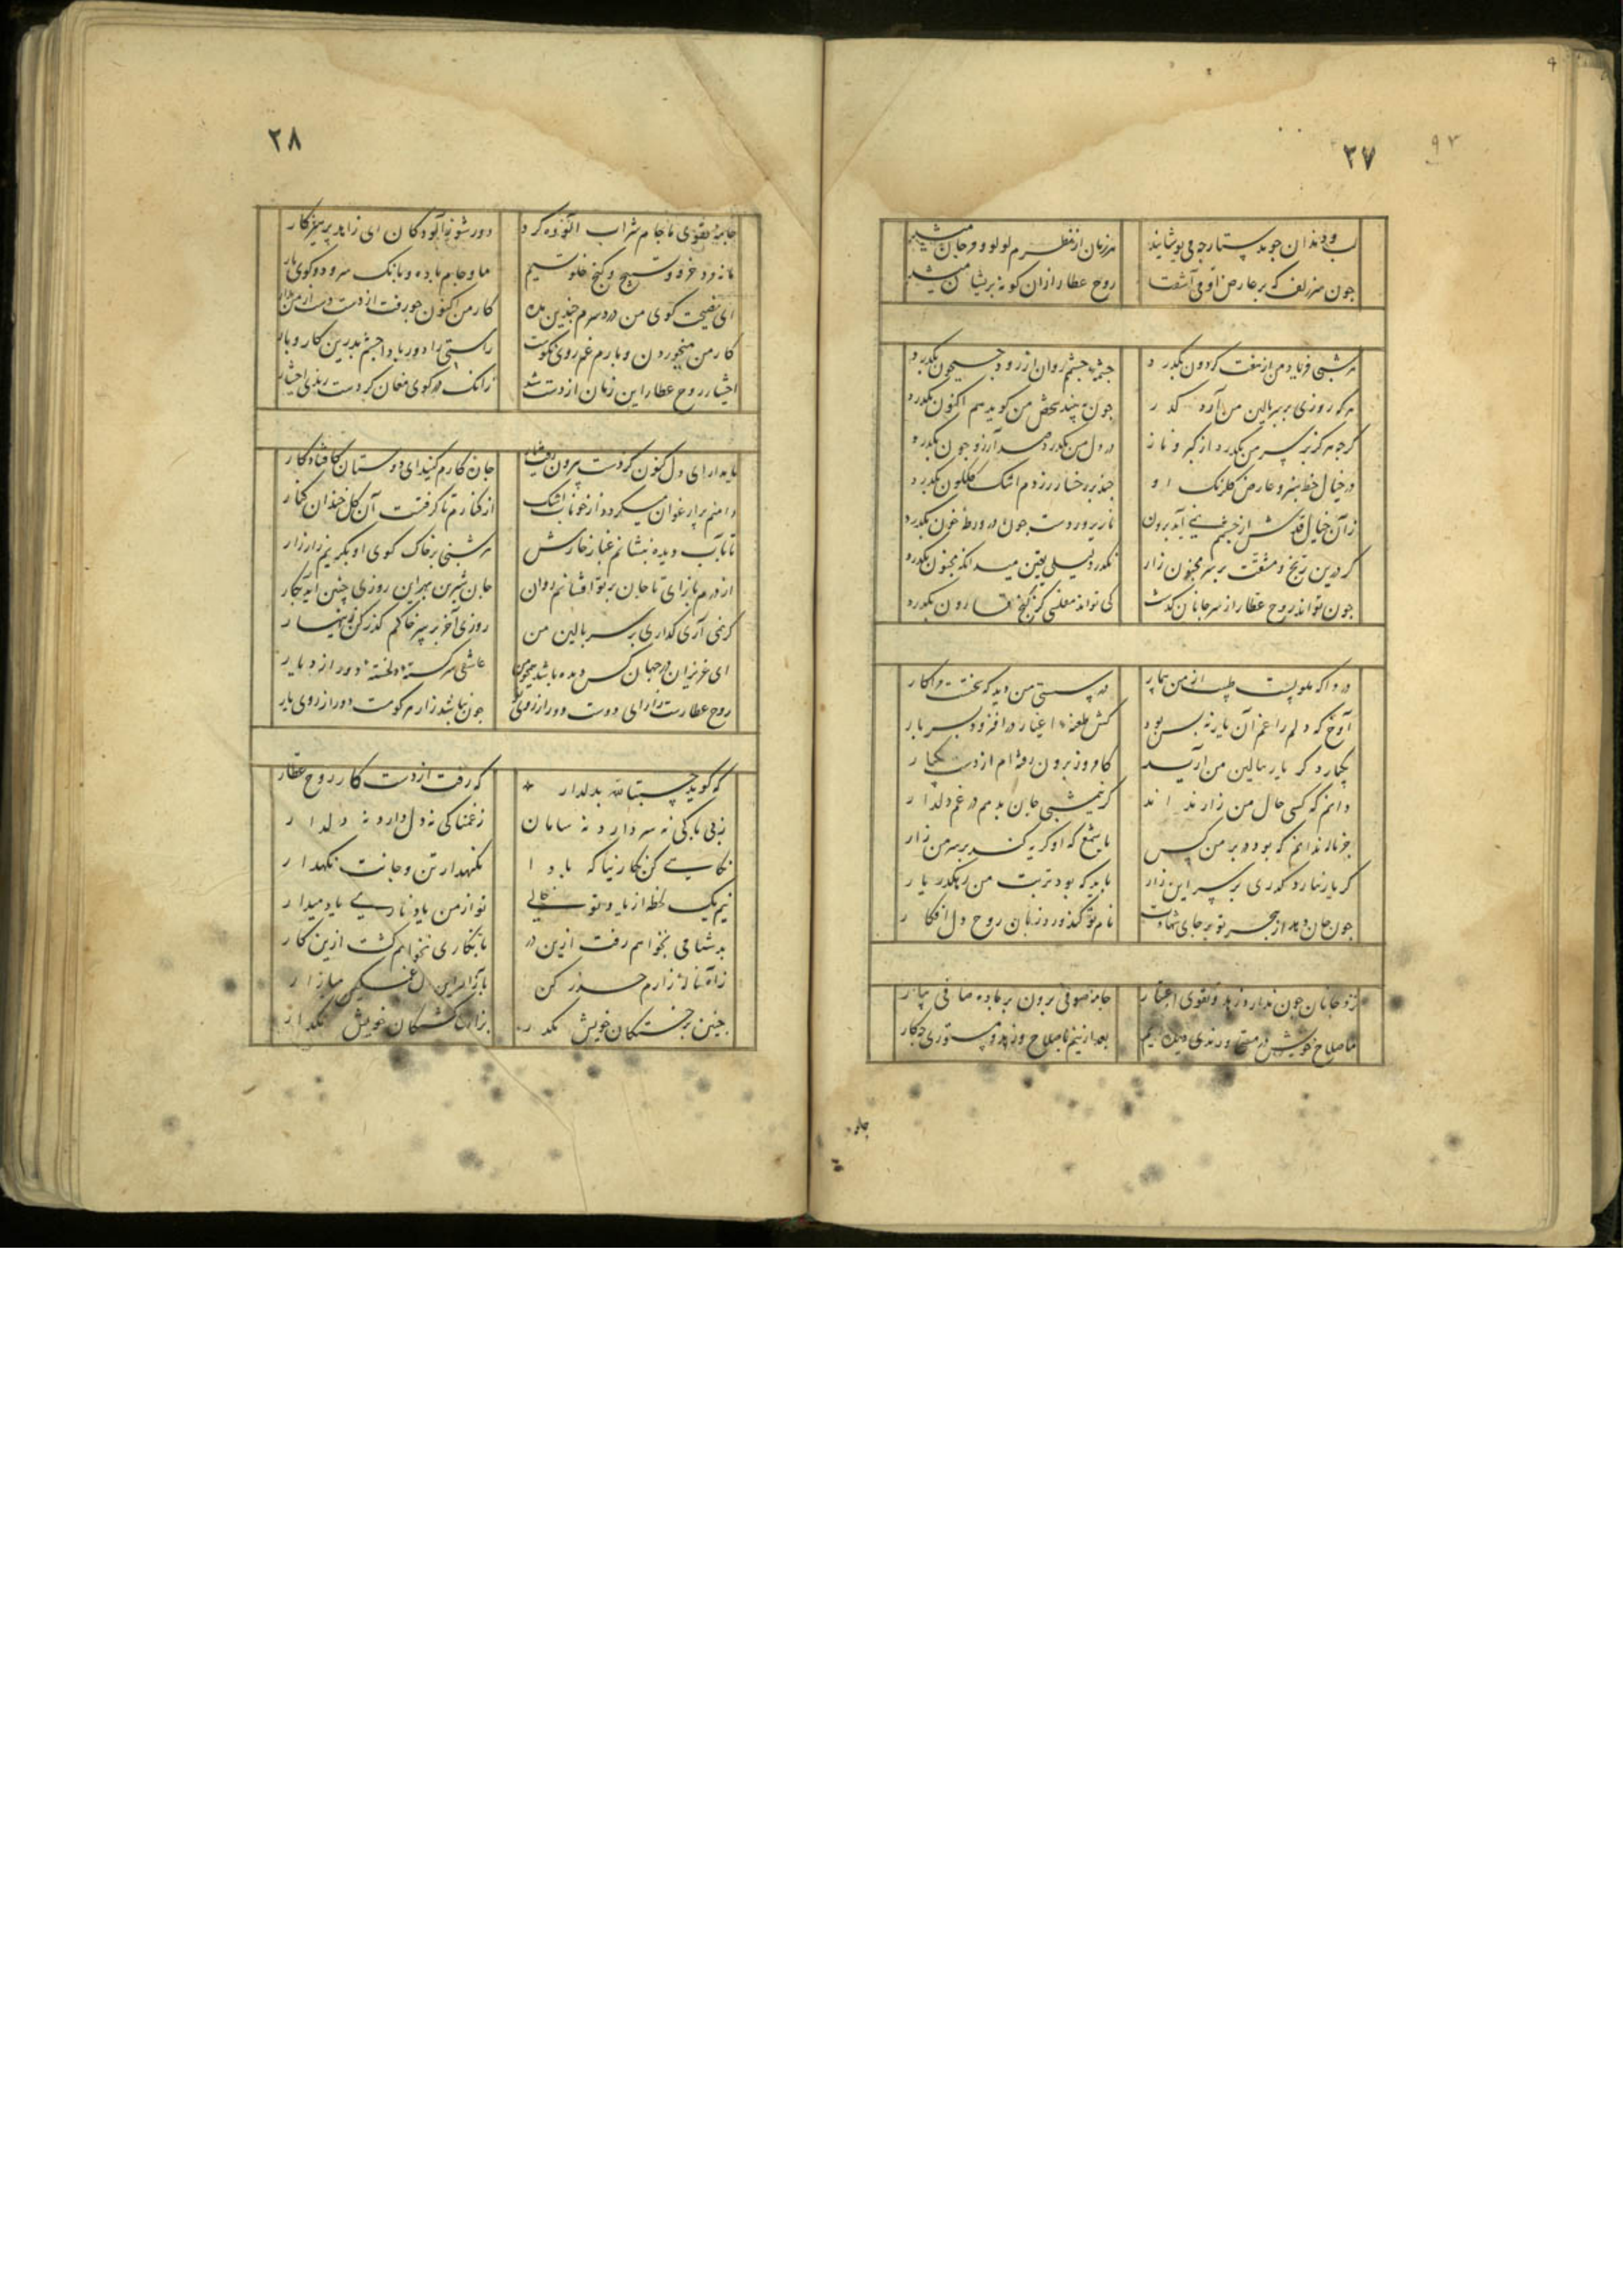 ۹۳
۲۷
لب و دندان جو بدستارجه می پوشانید
هر زمان از نظرم لولو و مرجان میشد
جون سر زلف که بر عارض او می آشفت
روح عطار ازان کونه پریشان میشد
هر شبی فریاد من از هفت کردون بکذرد
جشمهٔ جشمم روان از رود جیحون بکذرد
هر که روزی بر سر بالین من آرد کذر
جون به بیند شخص من کوید هم اکنون بکذرد
کرجه هرکز بر سر من نکذرد از کبر و ناز
در دل من بکذرد صد آرزو جون بکذرد
در خیال خط سبز و عارض کلرنک او
جند بر رخسار زردم اشک کلکون بکذرد
زان خیال قدش از جشمم نمی آید برون
کر درین رنج و مشقت بر سر مجنون زار
نکذرد لیلی یقین میدانکه مجنون بکذرد
جون تواند روح عطار از سر جانان کذشت
کی تواند مفلسی کز کنج قارون بکذرد
دردا که ملولست طبیب از من بیمار
آوخ که دلم را غم آن یار نه بس بود
کش طعنهٔ اغیار در افزود بسر بار
یکباره کر یار ببالین من آرید
کامروز برون رفته ام از دست بیکبار
دانم که کسی حال من زار نداند
کر نیمشبی جان بدهم در غم دلدار
جز ناله ندانم که بود در بر من کس
یا شمع که او کریه کند بر سر من زار
کر یار نیارد کذری بر سر این زار
باید که بود تربت من رهکذر یار
جون جان دهد از هجر تو بر جای شهادت
نام تو کند ورد زبان روح دل افکار
نزد جانان جون ندارد زهد و تقوی اعتبار
جامهٔ صوفی برون بر باده صافی بیار
ما صلاح خویش در مستی و رندی دیده ایم
بعد ازینم با صلاح و زهد و مستوری جکار
۲۸
جامهٔ تقوی ما جام شراب آلوده کرد
دور شو ز آلودکان ای زاهد پرهیزکار
ما نه مرد خرقه و تسبیح و کنج خلوتیم
ما و جام باده و بانک سرود و کوی یار
ای نصیحت کوی من دردسرم جندین مده
کار من اکنون جو رفت از دست دست از من بدار
کار من میخوردن و بارم غم روی نکوست
راستی را دور باد اجشم بد زین کار و بار
اختیار روح عطار این زمان از دست شد
زانک در کوی مغان کردست رندی اختیار
جان کارم کنید ای دوستان کافتاد کار
دامنم پر ارغوان میکردد از خوناب اشک
از کنارم تا کرفتست آن کل خندان کنار
تا باب دیده بنشانم غبار خارش
هر شبی بر خاک کوی او بکریم زار زار
از درم بازآی تا جان بر تو افشانم روان
جان شیرین بهر این روزی جنین آید بکار
کر نمی آری کذاری بر سر بالین من
روزی آخر بر سر خاکم کذر کن زینهار
ای عزیزان در جهان کس دیده باشد همجو من
عاشقی سرکشتهٔ دلخستهٔ دور از دیار
روح عطارست زار ای دوست دور از روی تو
جون نباشد زار هر کوهست دور از روی یار
که کوید حسبة لله بدلدار
که رفت از دست کار روح عطار
ز بی باکی نه سر دارد نه سامان
ز غمناکی نه دل دارد نه دلدار
نکاهی کن نکارینا که بادا
نکهدار تن و جانت نکهدار
نیم یک لحظه از یاد تو خالی
تو از من یاد ناری یاد میدار
بدشنامی نخواهم رفت ازین در
بانکاری نخواهم کشت ازین کار
ز آه و نالهٔ زارم حذر کن
جنین بر خستکان خویش مکذر